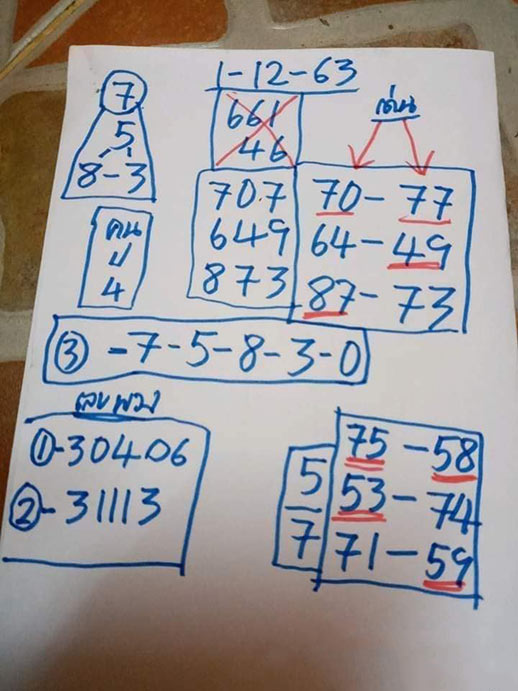 1-12-63
7
5
8-3
661
46
เด่น
707
649
873
70-77
64-49
87-73
คน
ป
4
③-7-5-8-3-0
①-30406
②-31113
5
7
75-58
53-74
71-59